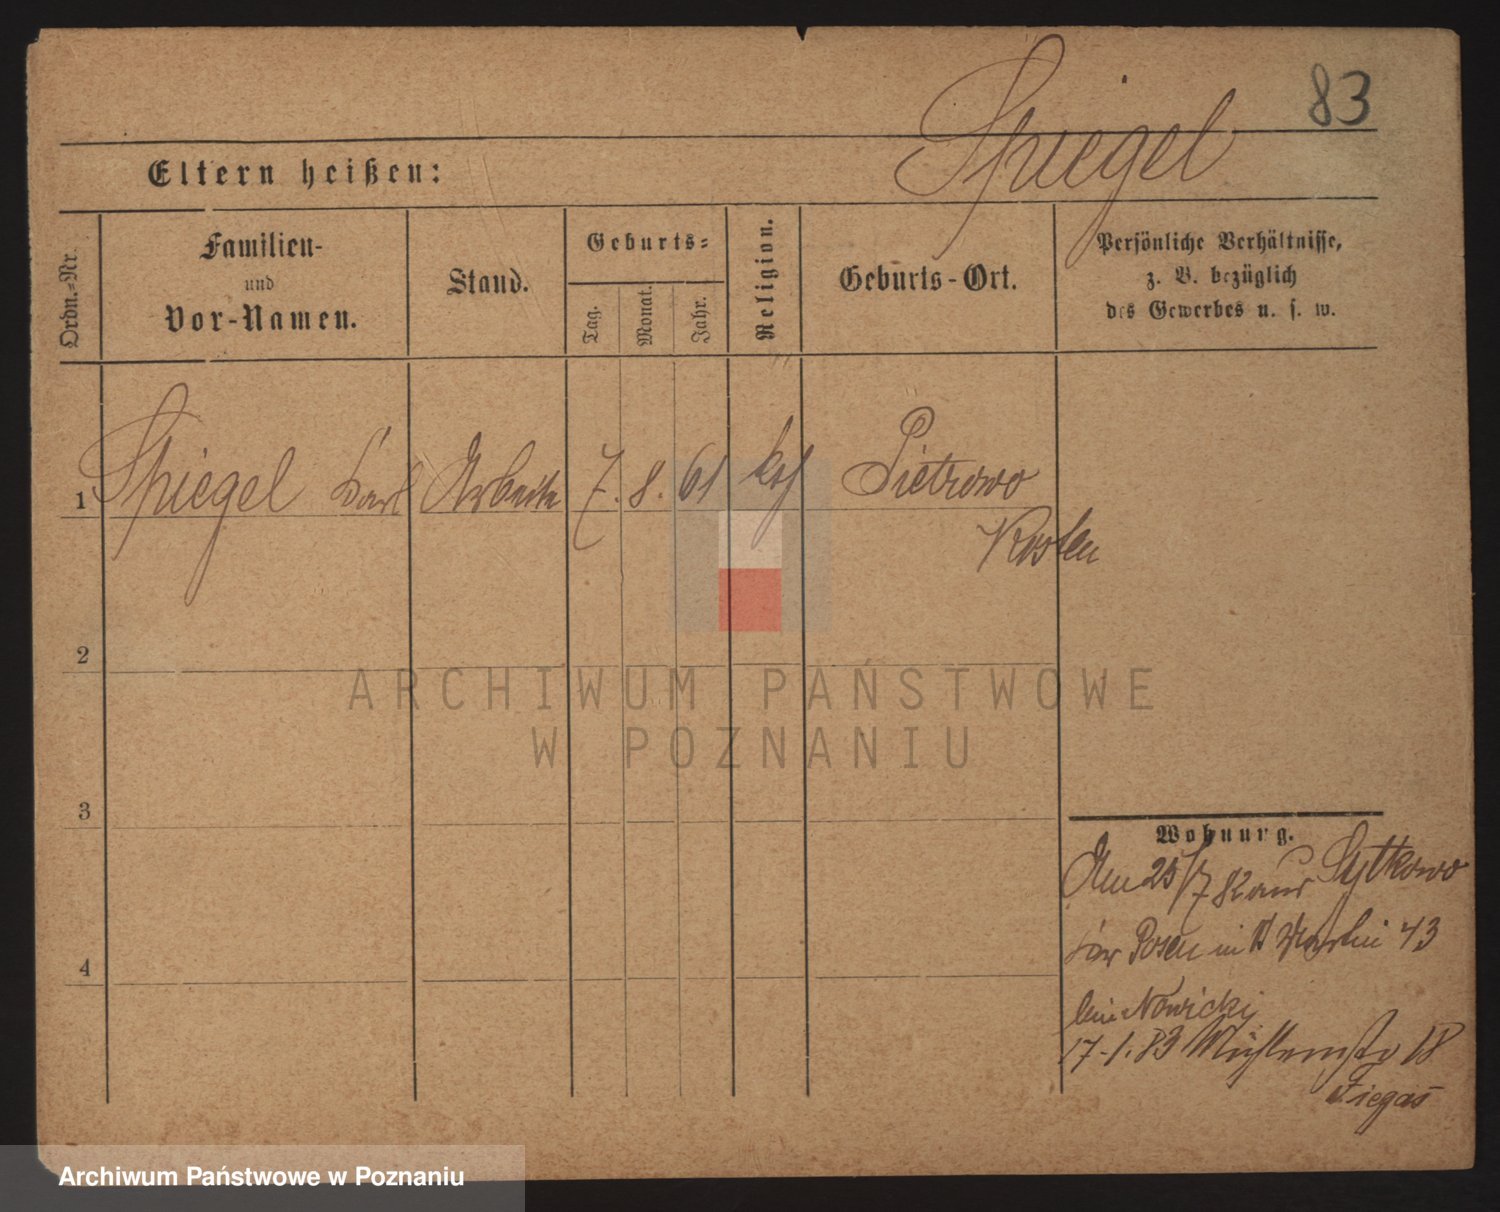 83
Spiegel
Eltern heißen:
Ordn.-Nr.
Familien-
und
Vor-Namen.
Stand.
Geburts-
Tag.
Monat.
Jahr.
Religion.
Geburts-Ort.
Persönliche Verhältnisse,
z. B. bezüglich
des Gewerbes u. s. w.
1 Spiegel Carl Arbeiter 7. 8. 61 kth Pietrowo
Kosten
2
ARCHIWUM PAŃSTWOWE
W POZNANIU
3
Wohnung.
Am 25/7 82 aus Sytkowo
Posen in St Martin 43
4
bei Nowicki
17-1.83 Mühlenstr 18
Fiegas
Archiwum Państwowe w Poznaniu